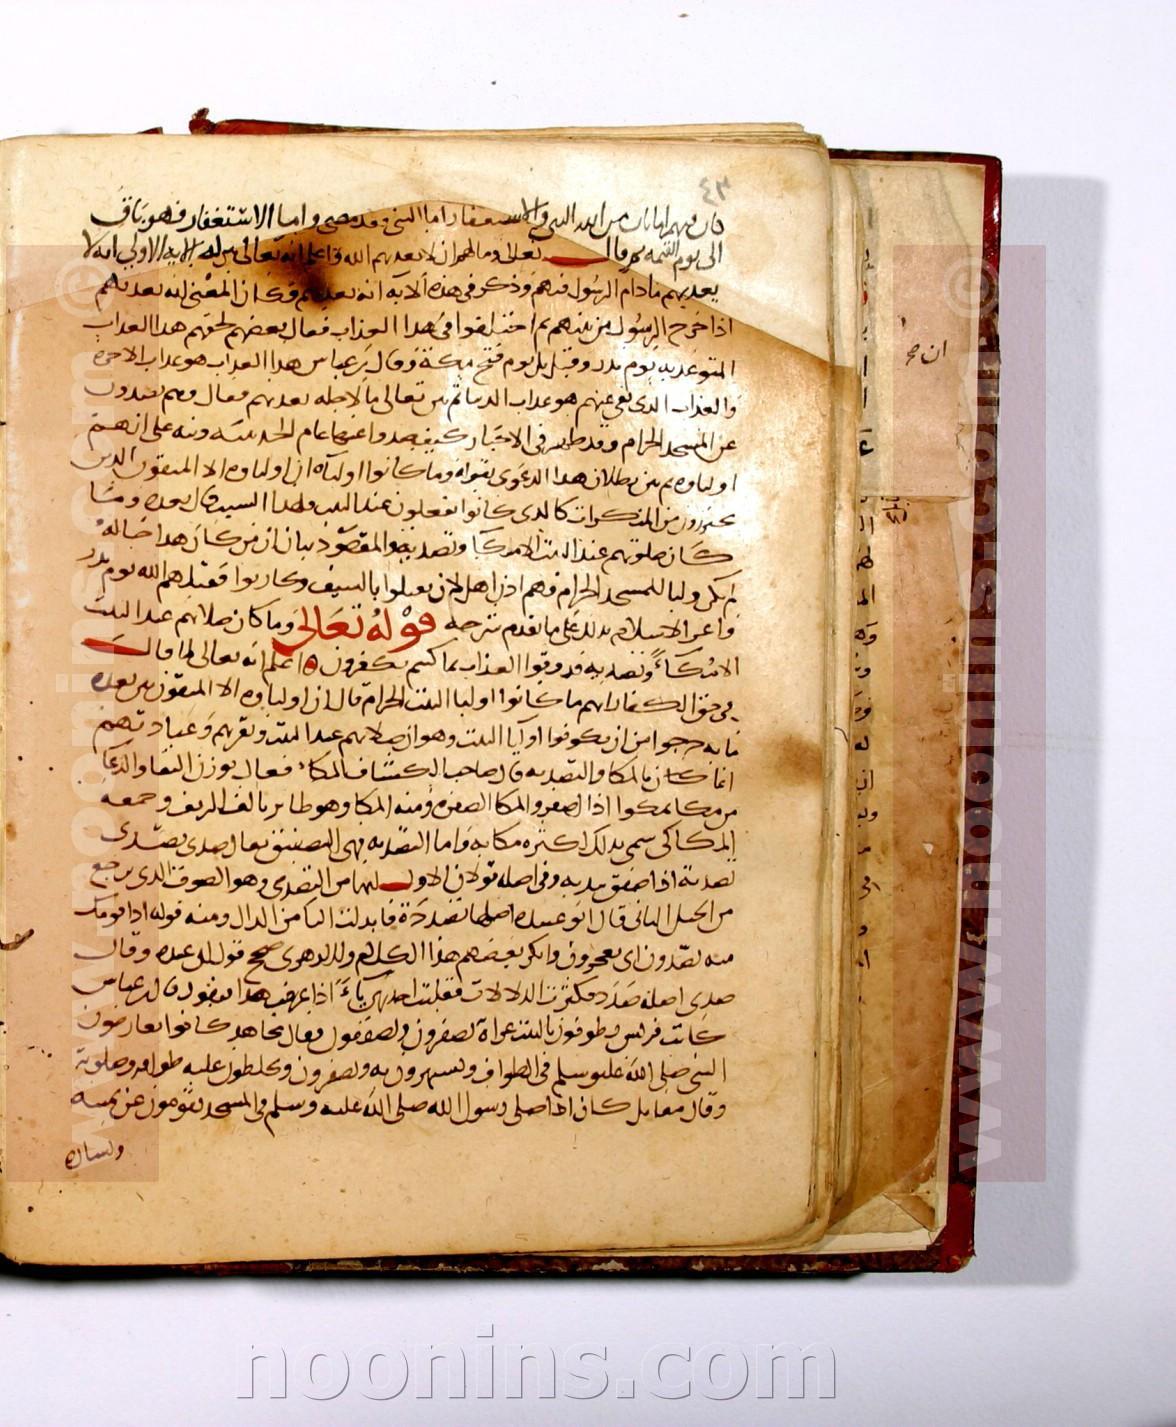 ٤٣
كان فيهم امانان من الله النبي والاستغفار اما النبي فقد مضى واما الاستغفار فهو باق
الى يوم القيمه ثم قال تعالى وما لهم ان لا يعذبهم الله واعلم انه تعالى بين له بالايه الاولى انه لا
يعذبهم ما دام الرسول فيهم وذكر في هذه الايه انه يعذبهم فكان المعنى انه يعذبهم
اذا خرج الرسول من بينهم ثم اختلفوا في هذا العذاب فقال بعضهم لحقهم هذا العذاب
المتوعد به يوم بدر وقيل بل يوم فتح مكة وقال بن عباس هذا العذاب هو عذاب الاخره
والعذاب الذي نفى عنهم هو عذاب الدنيا ثم بين تعالى ما لاجله يعذبهم فقال وهم يصدون
عن المسجد الحرام وقد ظهر في الاخبار كيف صدوا عنه عام الحديبيه ونبه على انهم
اولياوه ثم بين بطلان هذا الدعوى بقوله وما كانوا اولياه ان اولياوه الا المتقون الذين
يحترزون من المنكرات كالذي كانوا يفعلون عند البيت ولهذا السبب قال بعده وما
كان صلوتهم عند البيت الا مكا وتصديه والمقصود بيان ان من كان هذا حاله
لم يكن وليا للمسجد الحرام فهم اذن اهل لان يقتلوا بالسيف ويحاربوا فقتلهم الله يوم بدر
واعز الاسلام بذلك على ما تقدم شرحه قوله تعالى وما كان صلاتهم عند البيت
الا مكاءً وتصديه فذوقوا العذاب بما كنتم تكفرون اعلم انه تعالى لما قال
في حق الكفار انهم ما كانوا اوليا البيت الحرام قال ان اولياوه الا المتقون بين بعده
ما به خرجوا من ان يكونوا اوليا البيت وهو ان صلاتهم عند البيت وتقربهم وعبادتهم
انما كان بالمكا والتصديه قال صاحب الكشاف المكاء فعال بوزن الثغا والرغا
من مكا يمكوا اذا صفر والمكا الصفير ومنه المكا وهو طاير يالف الريف وجمعه
المكاكي سمي بذلك لكثره مكايه واما التصديه فهي التصفيق يقال صدى يصدى
تصدية اذا صفق بيديه وفي اصله قولان الاول انها من الصدى وهو الصوت الذي يرجع
من الجبل الثاني قال ابو عبيده اصلها تصددة فابدلت اليا من الدال ومنه قوله اذا قومك
منه يصدون اي يعجون وانكر بعضهم هذا الكلام والازهري صحح قول ابي عبيده وقال
صدى اصله صدد فكثرت الدالات فقلبت احداهن ياءً اذا عرفت هذا فنقول قال بن عباس
كانت قريش يطوفون بالبيت عراة يصفرون ويصفقون وقال مجاهد كانوا يعارضون
النبي صلى الله عليه وسلم في الطواف ويستهزون به ويصفرون ويخلطون عليه طوافه وصلوته
وقال مقاتل كان اذا صلى رسول الله صلى الله عليه وسلم في المسجد يقومون عن يمينه
ويساره
ان صح
www.noonins.com ©
noonins.com